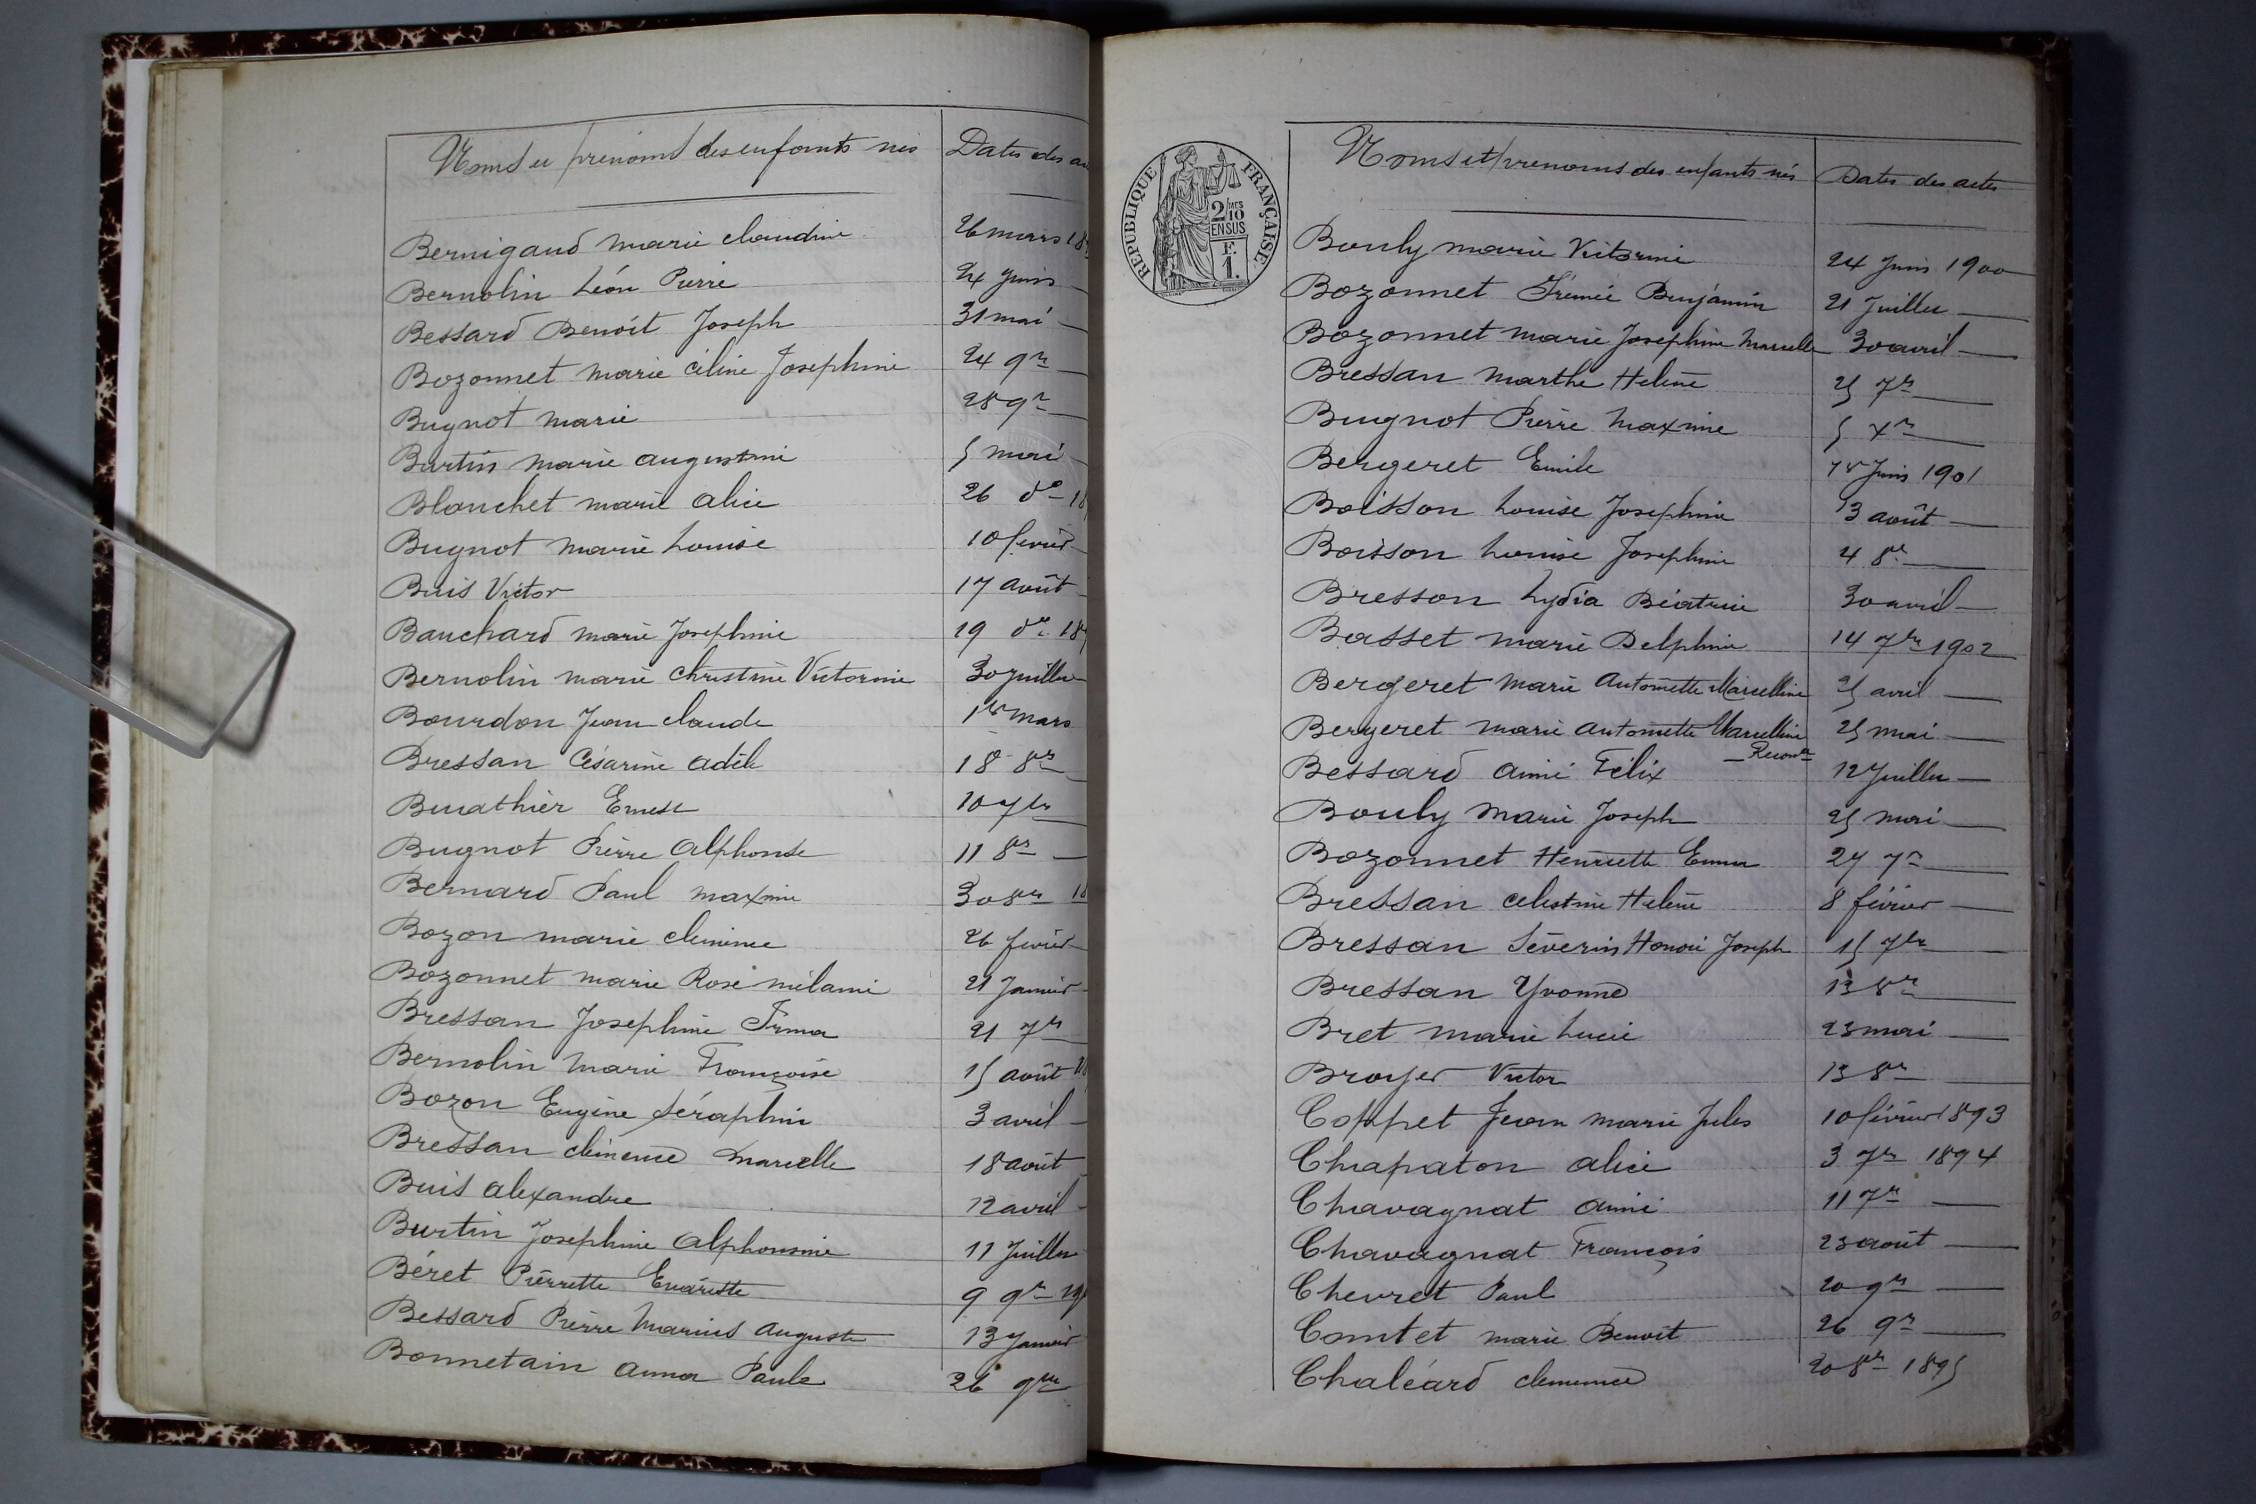 Noms et prénoms des enfants nés Dates des
Bernigaud marie claudine 26 mars 18
Bernolin Léon Pierre 24 Juin
Bessard Benoît Joseph 31 mai
Bozonnet marie céline Joséphine 24 9re
Bugnot marie 28 9re
Burtin marie augustine 5 mai
Blanchet marie alice 26 de 18
Bugnot marie Louise 10 février
Buis Victor 17 août
Bauchard marie Josephine 19 de 189
Bernolin marie christine Victorine 30 Juillet
Bourdon Jean claude 1er mars
Bressan Césarine adèle 18 8re
Buathier Ernest 10 7bre
Bugnot Pierre alphonse 11 8re
Bernard Paul maxime 30 8re 18
Bozon marie clémence 26 février
Bozonnet marie Rose mélanie 21 Janvier
Bressan Josephine Irma 21 7re
Bernolin marie Françoise 15 août 18
Bozon Eugène Séraphin 3 avril
Bressan clémence marcelle 18 août
Buis alexandre 12 avril
Burtin Josephine alphonsine 11 Juillet
Béret Pierrette Evariste 9 9re 19
Bessard Pierre Marius auguste 13 Janvier
Bonnetain anna Paule 26 9re
RÉPUBLIQUE FRANÇAISE
2/10 MES EN SUS
F. 1.
Noms et prénoms des enfants nés Dates des actes
Bouly marie Victorine 24 Juin 1900
Bozonnet Irénée Benjamin 21 Juillet
Bozonnet marie Josephine Marcelle 30 avril
Bressan Marthe Helène 25 7re
Bugnot Pierre Maxime 5 Xre
Bergeret Emile Juin 1901
Boisson Louise Josephine 3 août
Boisson Louise Josephine 4 8re
Bresson Lydia Béatrice 30 avril
Basset marie Delphine 14 7bre 1902
Bergeret Marie Antoinette Marcelline 25 avril
Bergeret marie antoinette Marcelline 25 mai
Reconce
Bessard aimé Félix 12 Juillet
Bouly Marie Joseph 25 mai
Bozonnet Henriette Emma 27 7re
Bressan célestine Helène 8 février
Bressan Séverin Honoré Joseph 15 7bre
Bressan Yvonne 13 8re
Bret marie Lucie 23 mai
Broyer Victor 13 8re
Coppet Jean marie Jules 10 février 1893
Chapaton alice 3 7re 1894
Chavagnat aimé 11 7re
Chavagnat François 23 août
Chevret Paul 20 9re
Comtet marie Benoît 26 9re
Chaléard clémence 20 8re 1895